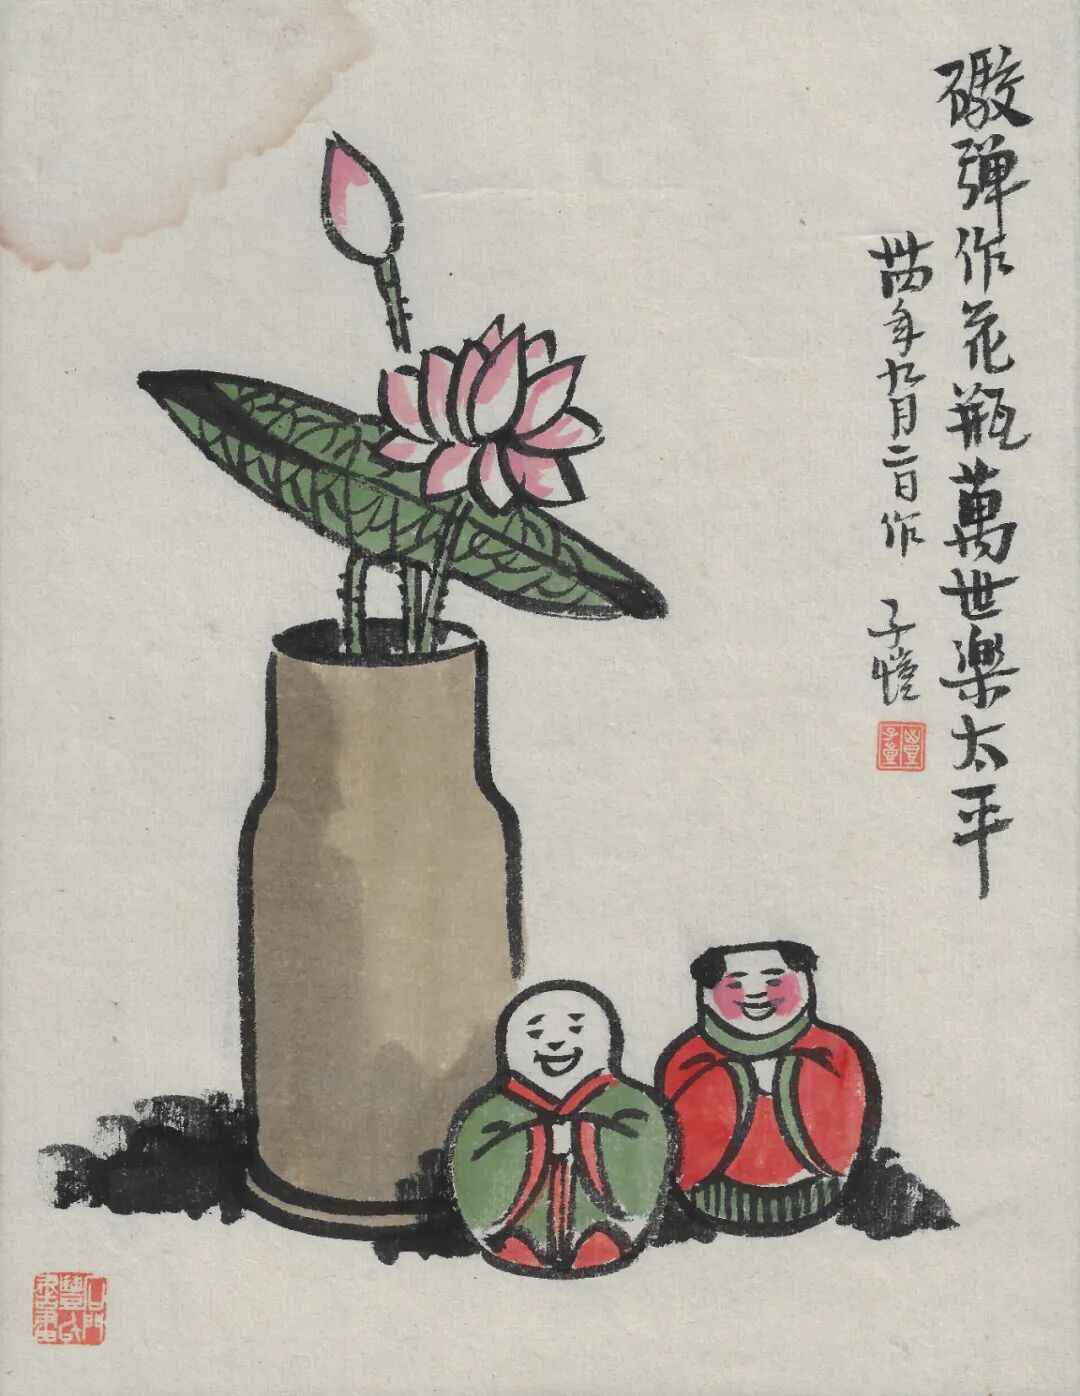 礮弹作花瓶萬世樂太平
卅四年九月二日作 子愷